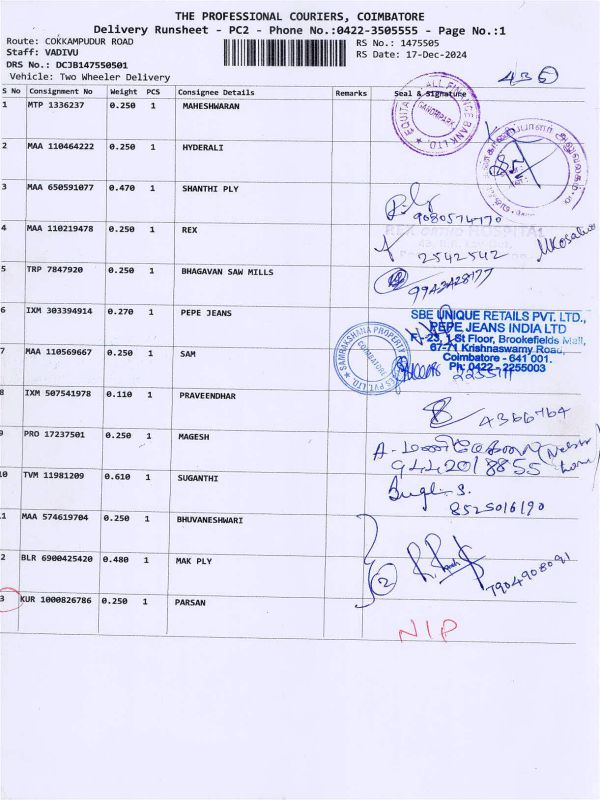 THE PROFESSIONAL COURIERS, COIMBATORE
Delivery Runsheet - PC2 - Phone No.:0422-3505555 - Page No.:1
Route: COKKAMPUDUR ROAD
RS No.: 1475505
Staff: VADIVU
RS Date: 17-Dec-2024
DRS No.: DCJB147550501
Vehicle: Two Wheeler Delivery
S No Consignment No Weight PCS Consignee Details Remarks Seal & Signature
1 MTP 1336237 0.250 1 MAHESHWARAN
2 MAA 110464222 0.250 1 HYDERALI
3 MAA 650591077 0.470 1 SHANTHI PLY
9080574770
4 MAA 110219478 0.250 1 REX
REX HOSPITAL
2542542
5 TRP 7847920 0.250 1 BHAGAVAN SAW MILLS
9943428177
6 IXM 303394914 0.270 1 PEPE JEANS
SBE UNIQUE RETAILS PVT. LTD.,
PEPE JEANS INDIA LTD
F-23, I St Floor, Brookefields Mall,
67-71 Krishnaswamy Road,
Coimbatore - 641 001.
Ph: 0422 - 2255003
7 MAA 110569667 0.250 1 SAM
SAMRAKSHANA PROPERTY
COIMBATORE
PVT. LTD.
8 IXM 507541978 0.110 1 PRAVEENDHAR
4366764
9 PRO 17237501 0.250 1 MAGESH
9442018855
10 TVM 11981209 0.610 1 SUGANTHI
8525016190
11 MAA 574619704 0.250 1 BHUVANESHWARI
2 BLR 6900425420 0.480 1 MAK PLY
2
7904908091
3 KUR 1000826786 0.250 1 PARSAN
NIP